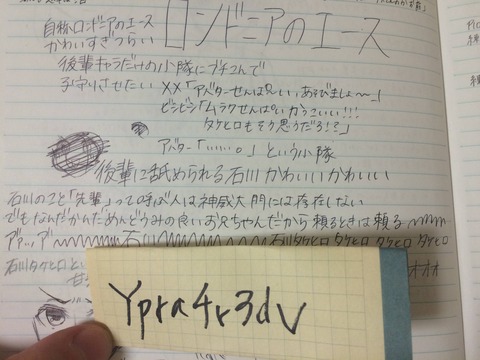 ロンドニアのエース
自称ロンドニアのエース
かわいすぎつらい
後輩キャラだけの小隊にブチこんで
子守りさせたい ××「アバターせんぱーい、あそびましょ〜」
ビシビシ「ムラクせんぱいかっこいい!!!
タケヒロもそう思うだろ!?」
アバター「……。」という小隊
後輩に舐められる石川かわいいかわいい
石川のこと「先輩」って呼ぶ人は神威大門には存在しない
でもなんだかんだめんどうみの良いお兄ちゃんだから頼るときは頼る
石川 石川タケヒロ タケヒロ タケヒロ タケヒロ
石川タケヒロ
オオオ
Ypra4r3dv